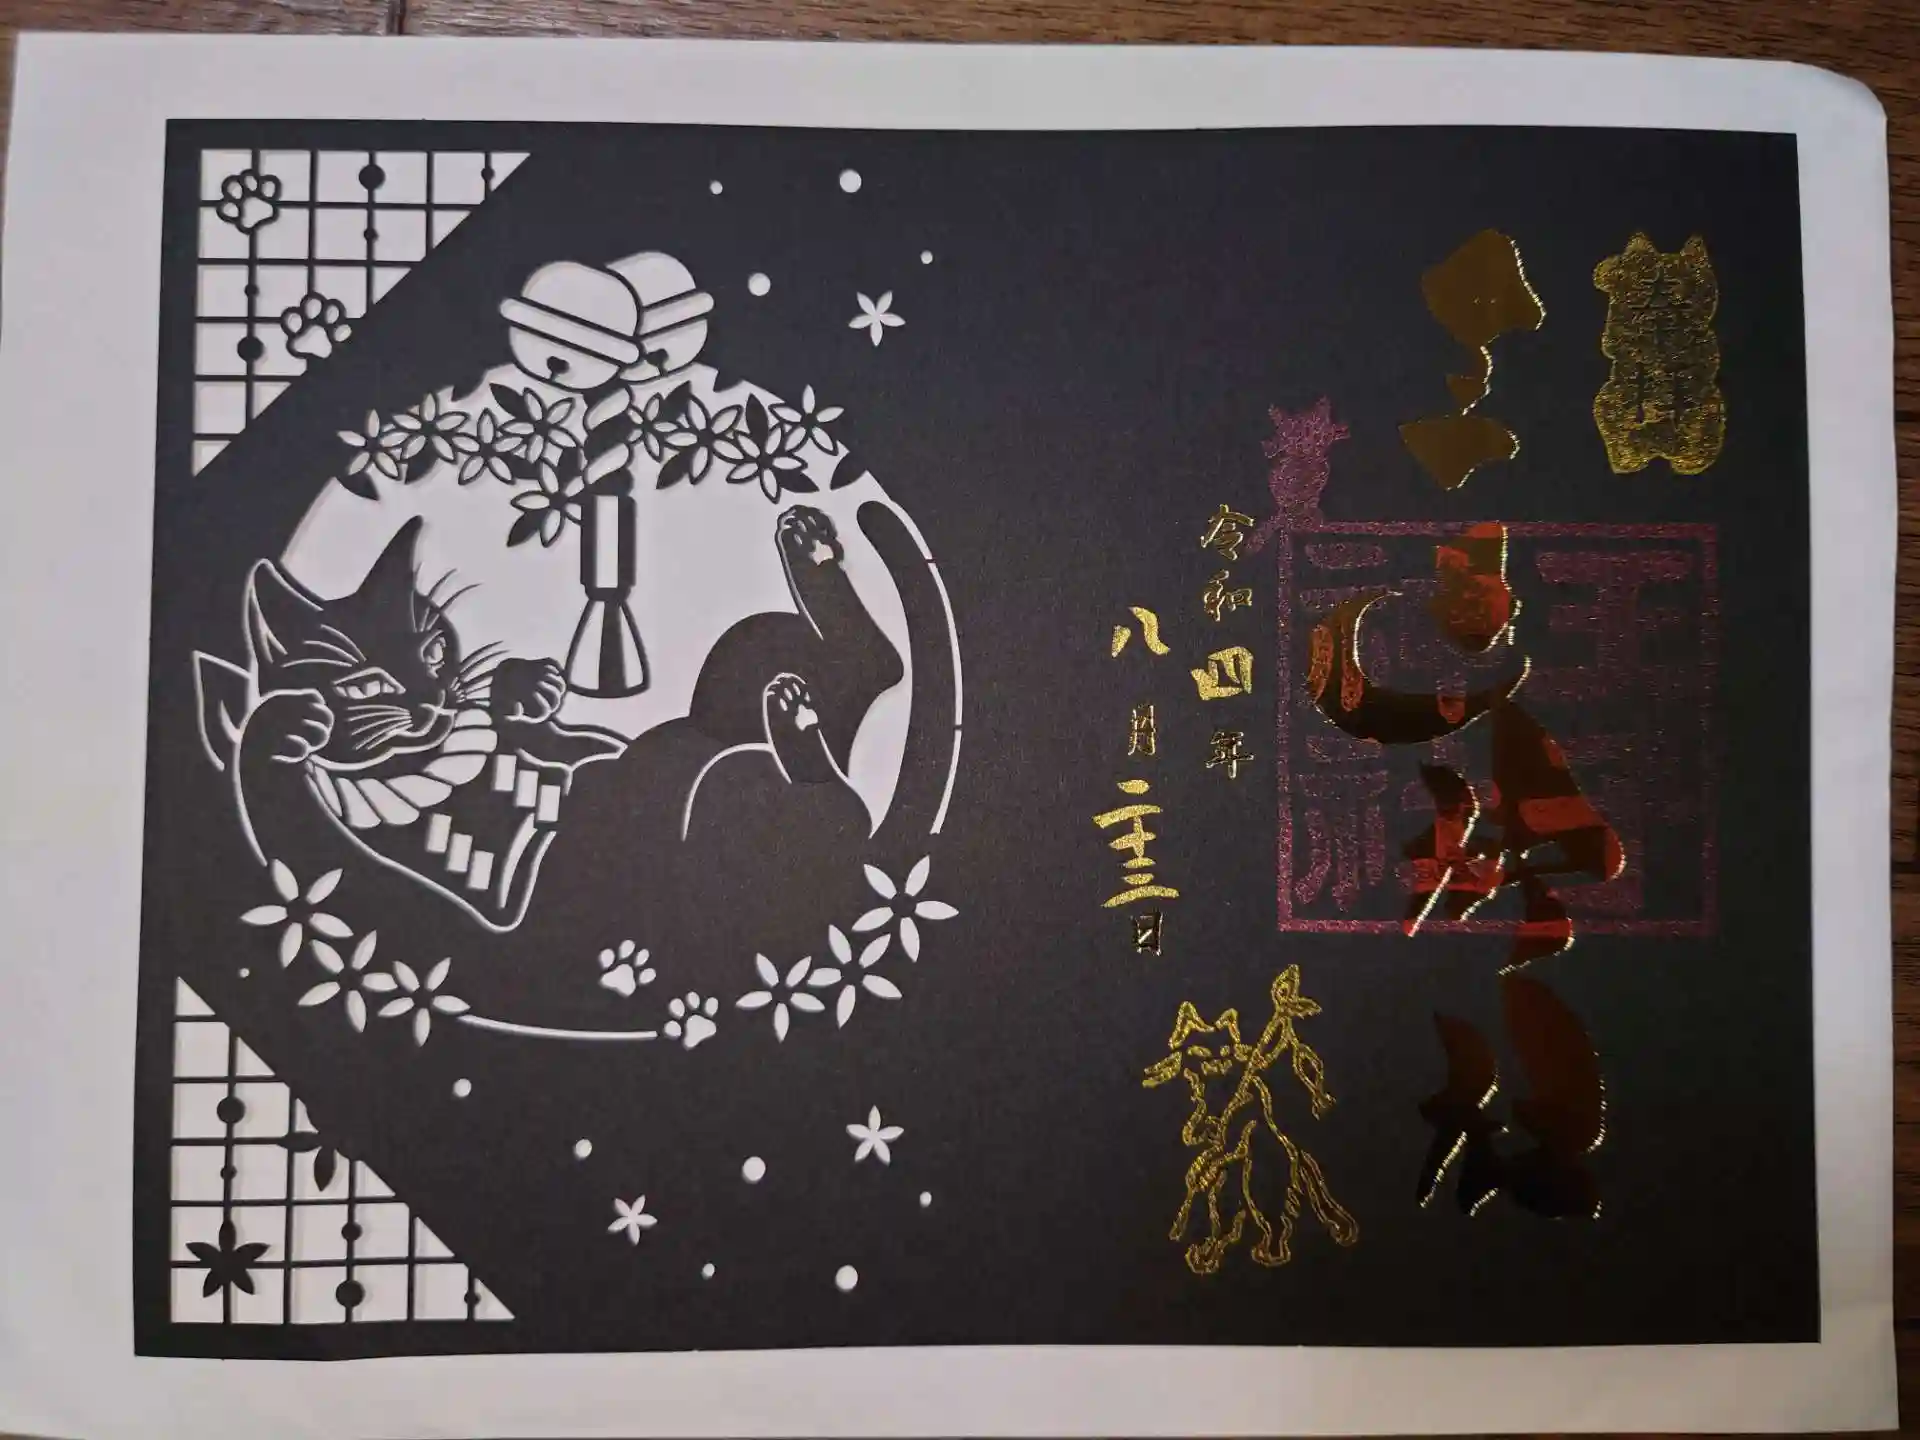 奉拝
王子神社
令和四年
八月二十三日